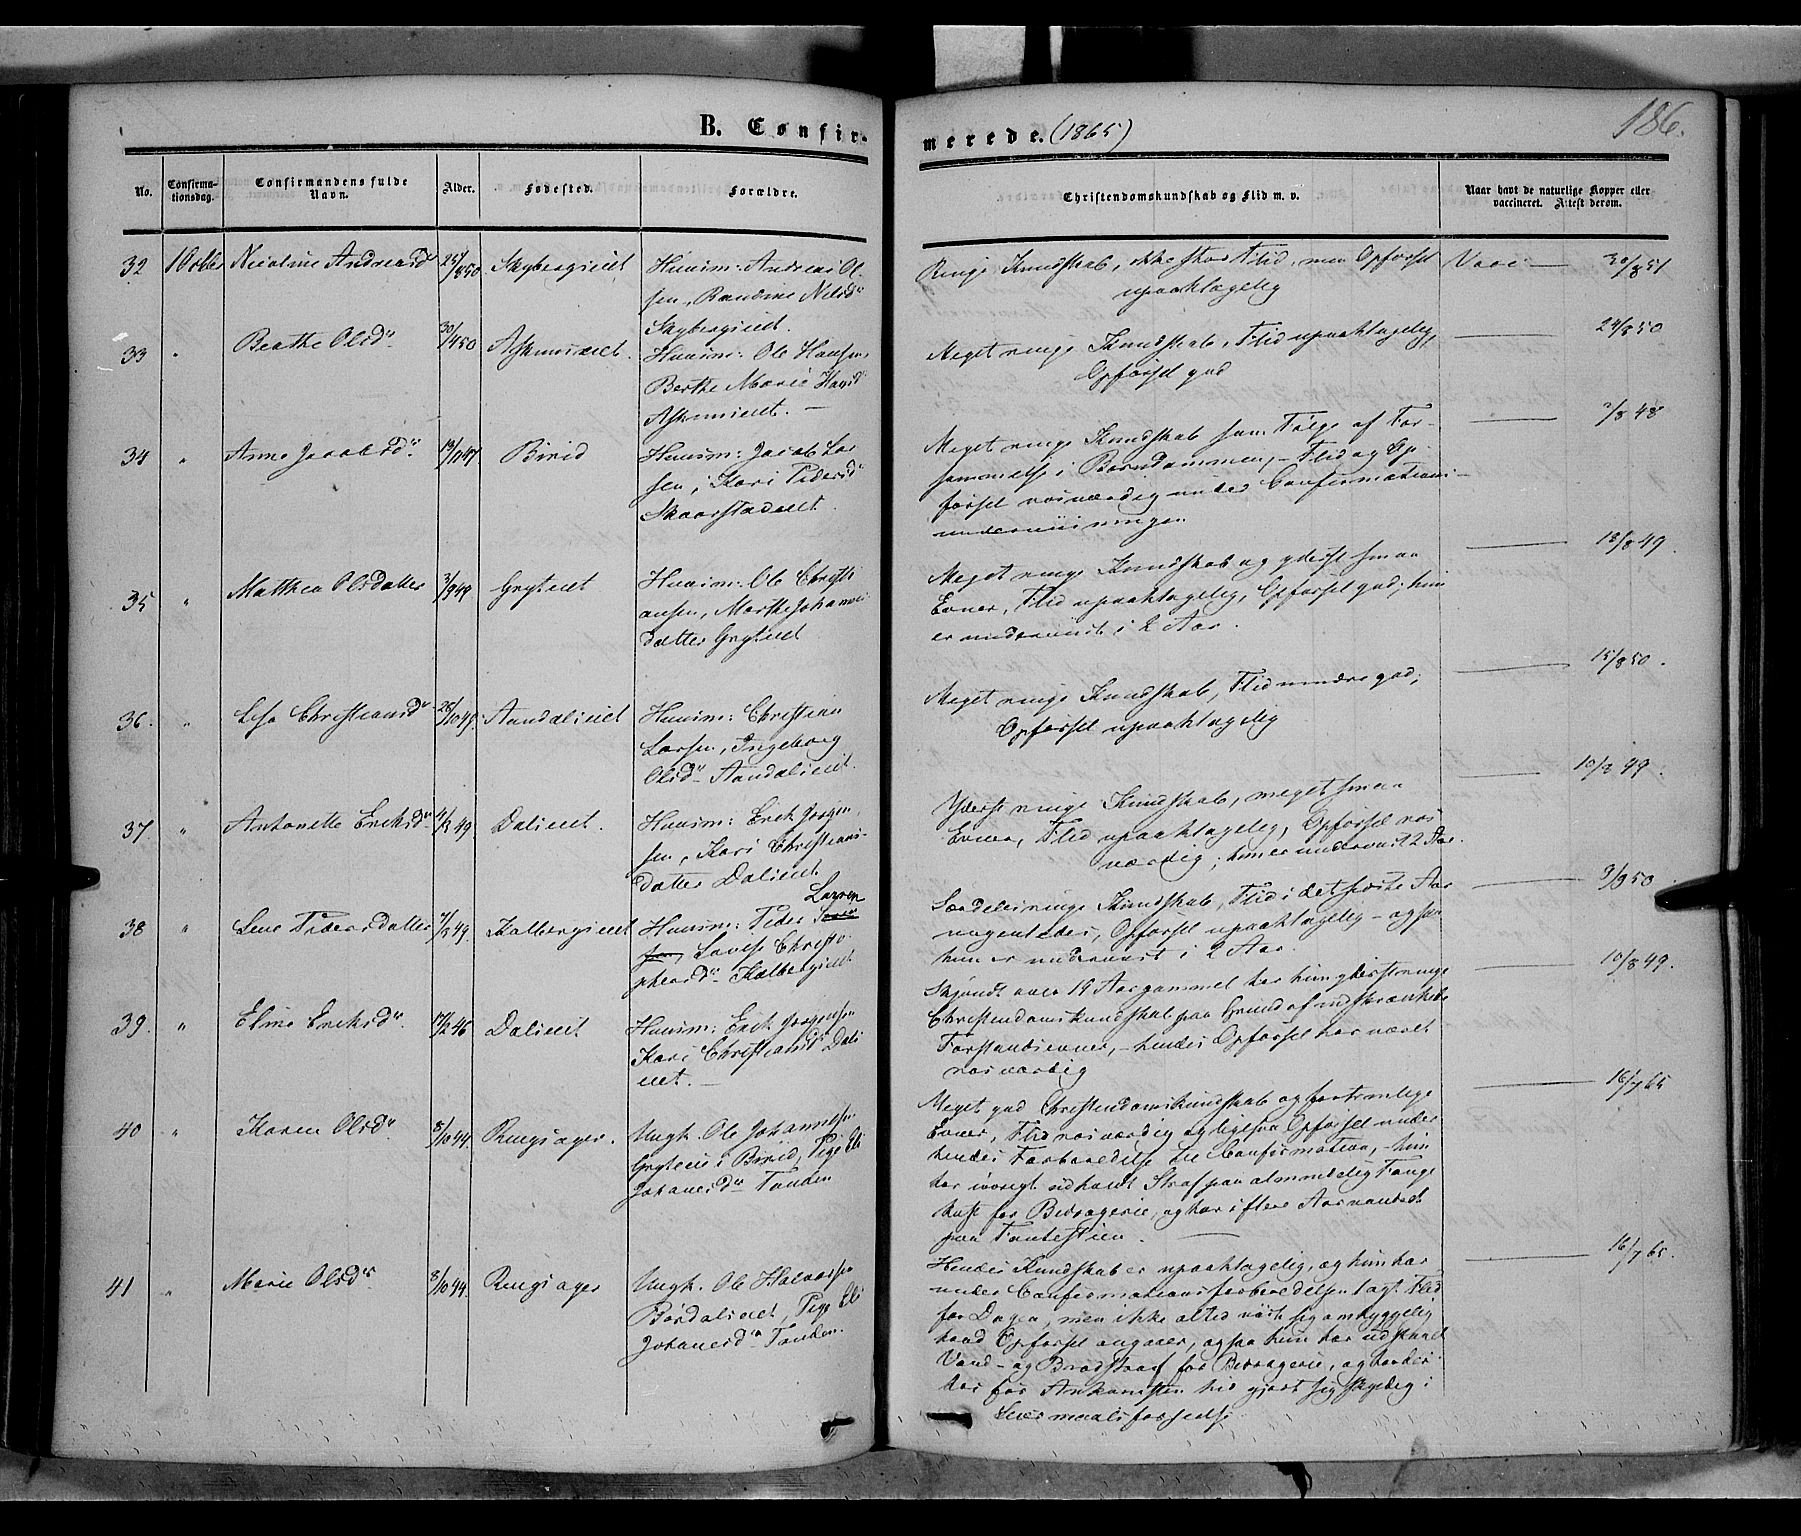 B. Confir-
merede. (1865)
186.
No.
Confirma-
tionsdag.
Confirmandens fulde
Navn.
Alder.
Fødested.
Forældre.
Christendomskundskab og Flid m. v.
Naar havt de naturlige Kopper eller
vaccineret. Attest derom.
32 1 Octbr Nicoline Andreasdr 25/850 Skybergeiet
Huusm: Andreas Ol
sen, Randine Nilsdr
Skybergeiet.
Ringe Kundskab, ikke stor Flid, men Opførsel
upaaklagelig
Vacc. — 30/8 51
33 " Berthe Olsdr 30/450
Huusm: Ole Hansen,
Berthe Marie Hansd
Meget ringe Kundskab, Flid upaaklagelig,
Opførsel god
— 24/8 50
34 " Anne Jacobsdr 13/1147 Birid
Huusm: Jacob Lar
sen, Kari Pedersdr
Skaarstadeiet.
Meget ringe Kundskab som Følge af For-
sømmelse i Barndommen, – Flid og Op-
førsel rosværdig under Confirmations-
underviisningen
— 7/8 48
35 " Matthea Olsdatter 3/949 Gryteiet
Huusm: Ole Christi
ansen, Marthe Johannes
datter Gryteiet
Meget ringe Kundskab og yderst smaa
Evner, Flid upaaklagelig, Opførsel god; hun
er underviist i 2 Aar.
— 18/8 49.
36. " Lisa Christiansdr 26/1049. Aandalseiet
Huusm: Christian
Larsen, Ingeborg
Olsdr Aandalseiet.
Meget ringe Kundskab, Flid mindre god;
Opførsel upaaklagelig
— 15/8 50.
37 " Antonette Eriksdr 4/349 Daleiet.
Huusm: Erik Jørgen
sen, Kari Christians
datter Daleiet
Yderst ringe Kundskab, meget smaa
Evner, Flid upaaklagelig, Opførsel ros-
værdig; hun er underviist 2 Aar.
— 10/8 49.
38 " Lene Pedersdatter 7/849. Kalbergeiet
Huusm: Peder Larsen
Lovise Christo
phersdr Kalbergeiet
Særdeles ringe Kundskab, Flid i det første Aar
nogenledes, Opførsel upaaklagelig – ogsaa
hun er underviist i 2 Aar.
— 9/9 50
39. " Eline Eriksdr. 17/246 Daleiet
Huusm: Erik Jørgensen
Kari Christiansdr Dal
eiet. —
Skjøndt over 19 Aar gammel har hun yderst ringe
Christendomskundskab paa Grund af indskrænkede
Forstandsevner, – hendes Opførsel har været
rosværdig
— 10/8 49.
40 " Karen Olsdr. 8/1044. Ringsager.
Ungk. Ole Johannesen
Gryteiet i Birid, Pige Eli
Johanesdr Tanden
Meget god Christendomskundskab og fortrinlige
Evner, Flid rosværdig og ligesaa Opførsel under
hendes Forberedelse til Confirmation, – hun
har iøvrigt udholdt Straf paa almindelig Fange
kost for Bedragerie, og har i flere Aar vandret
paa Fantestien.
— 16/7 65
41 " Marie Olsdr 8/1044. Ringsager
Ungk. Ole Halvorsen
Børdalseiet, Pige Eli
Johanesdr Tanden.
Hendes Kundskab er upaaklagelig, og hun har
under Confirmationsforberedelsen lagt Flid
for Dagen, men ikke altid viist sig omhyggelig
hvad Opførsel angaaer, ogsaa hun har udstaaet
Vand- og Brødstraf for Bedragerie, og desuden
har før Ankomsten hid gjort sig skyldig i
Leiermaalsforseelse.
— 16/7 65.